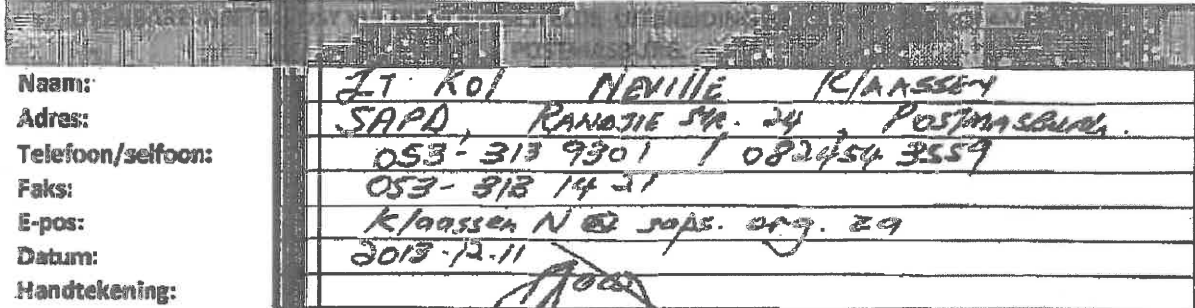 POSTMASBURG
Naam: LT KOL NEVILLE KLAASSEN
Adres: SAPD, RANDJIE STR. 24, POSTMASBURG.
Telefoon/selfoon: 053-313 9301 / 082454 3559
Faks: 053-313 14 21
E-pos: Klaassen N @ saps. org. za
Datum: 2013-12-11
Handtekening: